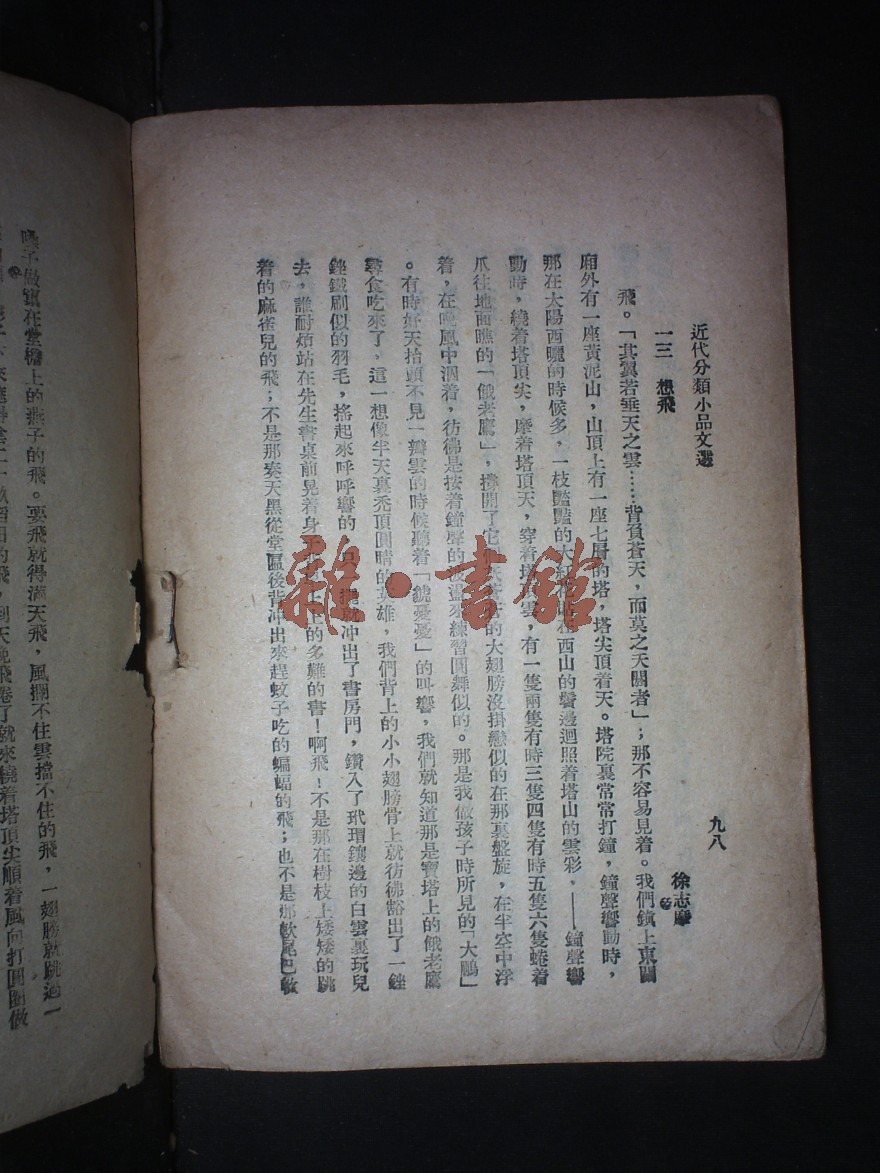 近代分類小品文選
九八
一三　想飛
徐志摩
飛。「其翼若垂天之雲……背負蒼天，而莫之夭閼者」；那不容易見着。我們鎭上東關
廂外有一座黃泥山，山頂上有一座七層的塔，塔尖頂着天。塔院裏常常打鐘，鐘聲響動時，
那在太陽西曬的時候多，一枝豔豔的大紅花貼在西山的鬢邊迴照着塔山的雲彩，——鐘聲響
動時，繞着塔頂尖，摩着塔頂天，穿着塔頂雲，有一隻兩隻有時三隻四隻有時五隻六隻蜷着
爪往地面瞧的「餓老鷹」，撐開了它們灰蒼蒼的大翅膀沒掛戀似的在那裏盤旋，在半空中浮
着，在晚風中泅着，彷彿是按着鐘聲的波盪來練習圓舞似的。那是我做孩子時所見的「大鵬」
。有時好天抬頭不見一瓣雲的時候聽着「貌憂憂」的叫響，我們就知道那是寶塔上的餓老鷹
尋食吃來了，這一想像半天裏禿頂圓睛的英雄，我們背上的小小翅膀骨上就彷彿豁出了一銼
銼鐵刷似的羽毛，搖起來呼呼響的，只一擺就冲出了書房門，鑽入了玳瑁鑲邊的白雲裏玩兒
去，誰耐煩站在先生書桌前晃着身子背早上的多難的書！啊飛！不是那在樹枝上矮矮的跳
着的麻雀兒的飛；不是那湊天黑從堂匾後背冲出來趕蚊子吃的蝙蝠的飛；也不是那軟尾巴軟
嗓子做窠在堂檐上的燕子的飛。要飛就得滿天飛，風攔不住雲擋不住的飛，一翅膀就跳過一
的飛，到天晚飛倦了就來繞着塔頂尖順着風向打圓圈做
雜·書館